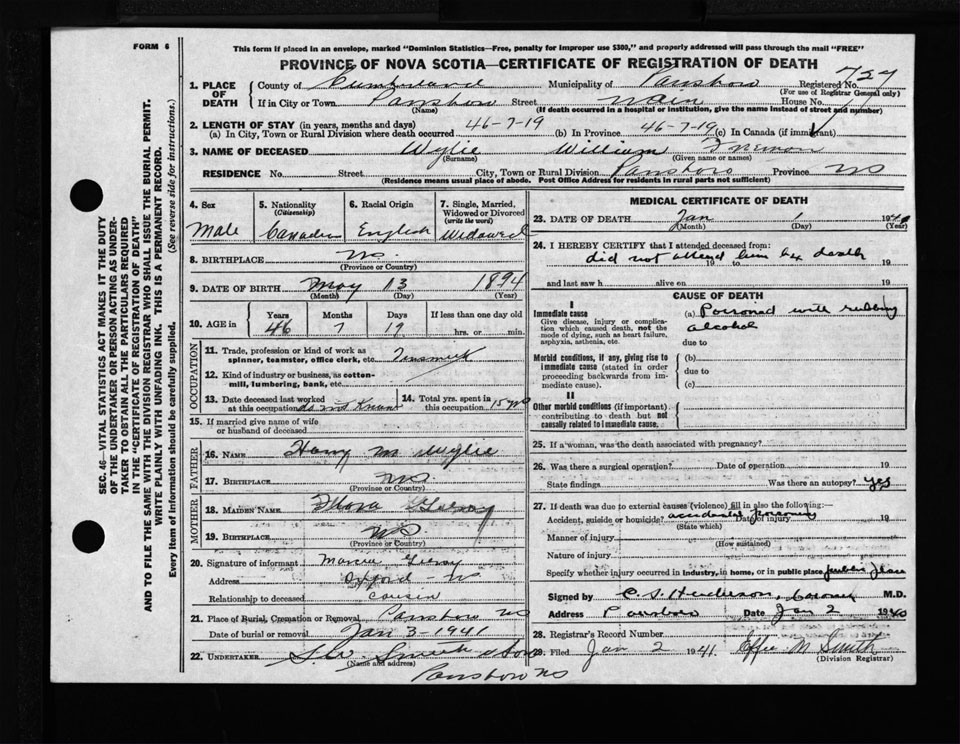 FORM 6
This form if placed in an envelope, marked "Dominion Statistics—Free, penalty for improper use $300," and properly addressed will pass through the mail "FREE"
PROVINCE OF NOVA SCOTIA—CERTIFICATE OF REGISTRATION OF DEATH
1. PLACE OF DEATH County of Cumberland Municipality of Parrsboro Registered No. 727
(For use of Registrar General only)
If in City or Town Parrsboro Street Main House No.
(Name) (If death occurred in a hospital or institution, give the name instead of street and number)
2. LENGTH OF STAY (in years, months and days)
(a) In City, Town or Rural Division where death occurred 46-7-19 (b) In Province 46-7-19 (c) In Canada (if immigrant)
3. NAME OF DECEASED Wylie William
(Surname) (Given name or names)
RESIDENCE No. Street City, Town or Rural Division Parrsboro Province NS
(Residence means usual place of abode. Post Office Address for residents in rural parts not sufficient)
4. Sex Male
5. Nationality (Citizenship) Canadian
6. Racial Origin English
7. Single, Married, Widowed or Divorced (write the word) Widowed
8. BIRTHPLACE NS.
(Province or Country)
9. DATE OF BIRTH May 13 1894
(Month) (Day) (Year)
10. AGE in Years Months Days If less than one day old
46 7 19 hrs. or min.
OCCUPATION
11. Trade, profession or kind of work as spinner, teamster, office clerk, etc. Tinsmith
12. Kind of industry or business, as cotton-mill, lumbering, bank, etc.
13. Date deceased last worked at this occupation do not know
14. Total yrs. spent in this occupation 15 yrs
15. If married give name of wife or husband of deceased
FATHER
16. NAME Harry M. Wylie
17. BIRTHPLACE NS.
(Province or Country)
MOTHER
18. MAIDEN NAME Flora
19. BIRTHPLACE NS
(Province or Country)
20. Signature of informant
Address Oxford - NS
Relationship to deceased cousin
21. Place of Burial, Cremation or Removal Parrsboro NS
Date of burial or removal Jan 3 - 1941
22. UNDERTAKER Smith
(Name and address)
Parrsboro NS
MEDICAL CERTIFICATE OF DEATH
23. DATE OF DEATH Jan 1 194
(Month) (Day) (Year)
24. I HEREBY CERTIFY that I attended deceased from:
did not attend him
19 to 19
and last saw h alive on 19
CAUSE OF DEATH
I
Immediate cause (a) Poisoned with rubbing alcohol
Give disease, injury or complication which caused death, not the mode of dying, such as heart failure, asphyxia, asthenia, etc.
due to
Morbid conditions, if any, giving rise to immediate cause (stated in order proceeding backwards from immediate cause).
(b)
due to
(c)
II
Other morbid conditions (if important) contributing to death but not causally related to immediate cause.
25. If a woman, was the death associated with pregnancy?
26. Was there a surgical operation? Date of operation 19
State findings Was there an autopsy? Yes
27. If death due to external causes (violence) fill in also the following:—
Accident, suicide or homicide? accidental poisoning Date of injury 19
(State which)
Manner of injury
(How sustained)
Nature of injury
Specify whether injury occurred in industry, in home, or in public place public place
Signed by C. S. Henderson, Coroner M.D.
Address Parrsboro Date Jan 2 19
28. Registrar's Record Number
29. Filed Jan 2 1941 Effie M Smith
(Division Registrar)
SEC. 46—VITAL STATISTICS ACT MAKES IT THE DUTY
OF THE UNDERTAKER OR PERSON ACTING AS UNDER-
TAKER TO OBTAIN ALL THE PARTICULARS REQUIRED
IN THE "CERTIFICATE OF REGISTRATION OF DEATH"
AND TO FILE THE SAME WITH THE DIVISION REGISTRAR WHO SHALL ISSUE THE BURIAL PERMIT.
WRITE PLAINLY WITH UNFADING INK. THIS IS A PERMANENT RECORD.
Every item of information should be carefully supplied. (See reverse side for instructions.)